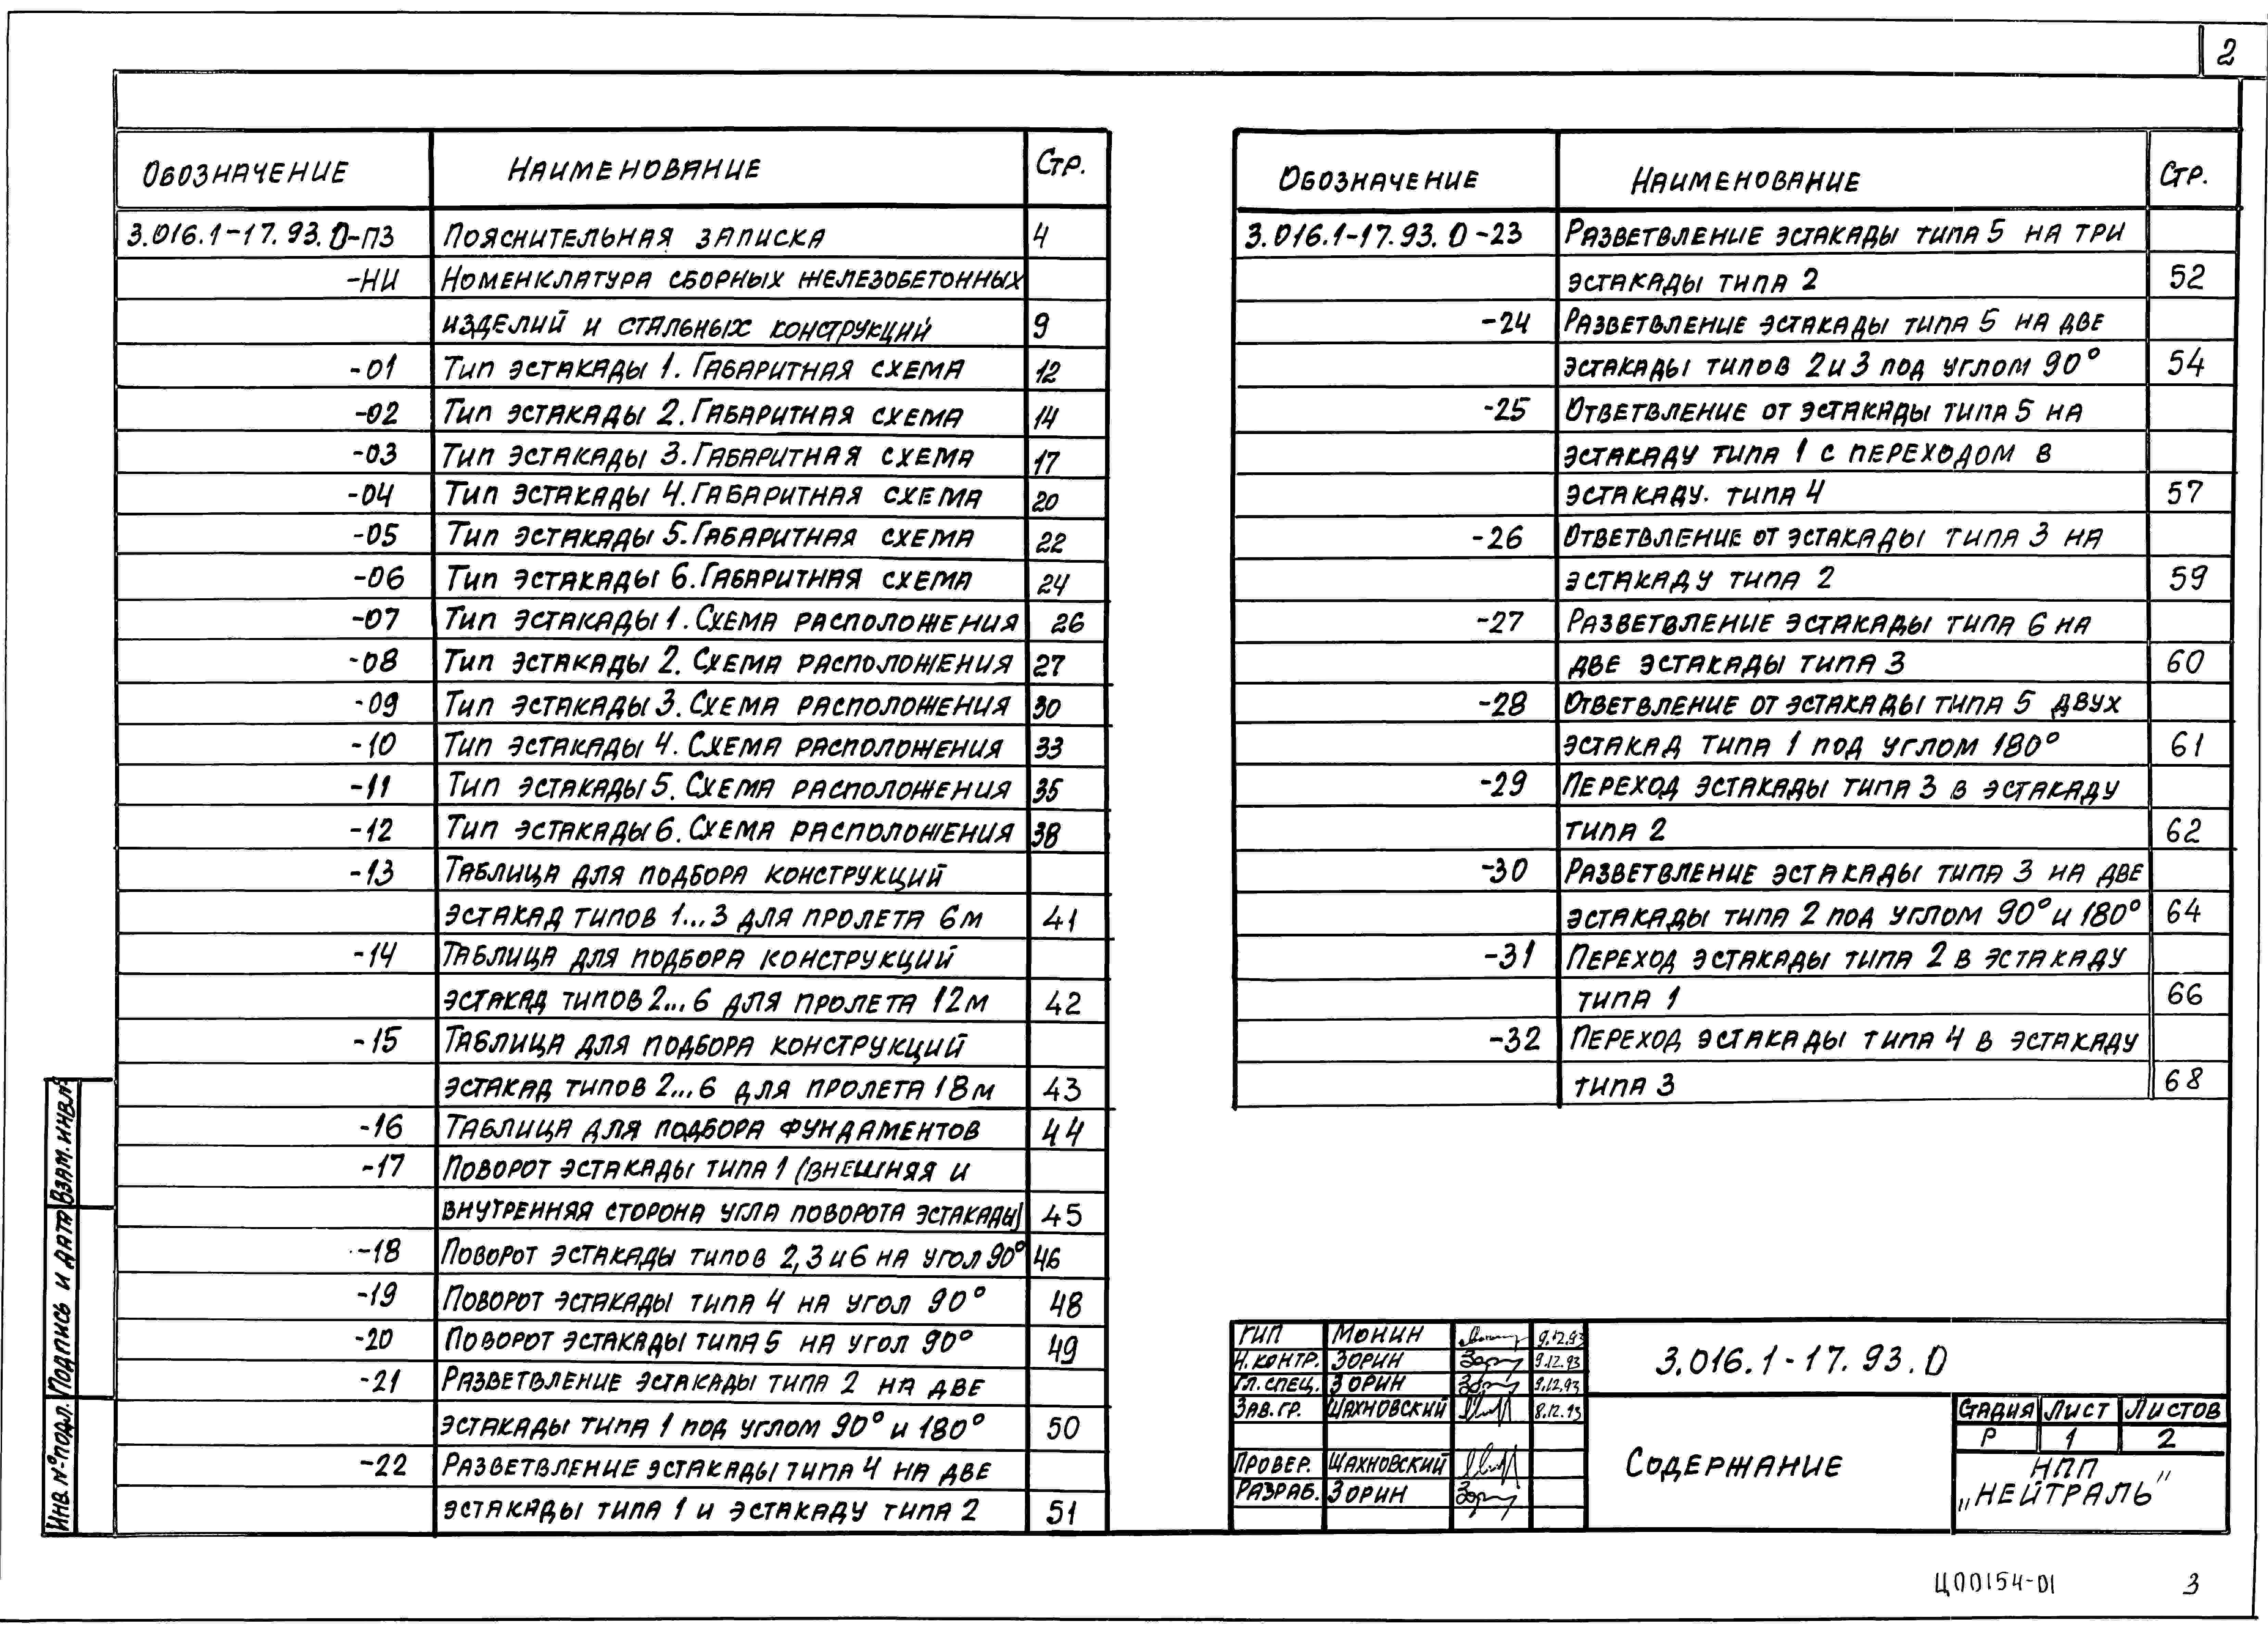 2
Обозначение Наименование Стр.
3.016.1-17.93.0-ПЗ Пояснительная записка 4
-НИ Номенклатура сборных железобетонных
изделий и стальных конструкций 9
-01 Тип эстакады 1. Габаритная схема 12
-02 Тип эстакады 2. Габаритная схема 14
-03 Тип эстакады 3. Габаритная схема 17
-04 Тип эстакады 4. Габаритная схема 20
-05 Тип эстакады 5. Габаритная схема 22
-06 Тип эстакады 6. Габаритная схема 24
-07 Тип эстакады 1. Схема расположения 26
-08 Тип эстакады 2. Схема расположения 27
-09 Тип эстакады 3. Схема расположения 30
-10 Тип эстакады 4. Схема расположения 33
-11 Тип эстакады 5. Схема расположения 35
-12 Тип эстакады 6. Схема расположения 38
-13 Таблица для подбора конструкций
эстакад типов 1...3 для пролета 6м 41
-14 Таблица для подбора конструкций
эстакад типов 2...6 для пролета 12м 42
-15 Таблица для подбора конструкций
эстакад типов 2...6 для пролета 18м 43
-16 Таблица для подбора фундаментов 44
-17 Поворот эстакады типа 1 (внешняя и
внутренняя сторона угла поворота эстакады) 45
-18 Поворот эстакады типов 2, 3 и 6 на угол 90° 46
-19 Поворот эстакады типа 4 на угол 90° 48
-20 Поворот эстакады типа 5 на угол 90° 49
-21 Разветвление эстакады типа 2 на две
эстакады типа 1 под углом 90° и 180° 50
-22 Разветвление эстакады типа 4 на две
эстакады типа 1 и эстакаду типа 2 51
Обозначение Наименование Стр.
3.016.1-17.93.0-23 Разветвление эстакады типа 5 на три
эстакады типа 2 52
-24 Разветвление эстакады типа 5 на две
эстакады типов 2 и 3 под углом 90° 54
-25 Ответвление от эстакады типа 5 на
эстакаду типа 1 с переходом в
эстакаду. типа 4 57
-26 Ответвление от эстакады типа 3 на
эстакаду типа 2 59
-27 Разветвление эстакады типа 6 на
две эстакады типа 3 60
-28 Ответвление от эстакады типа 5 двух
эстакад типа 1 под углом 180° 61
-29 Переход эстакады типа 3 в эстакаду
типа 2 62
-30 Разветвление эстакады типа 3 на две
эстакады типа 2 под углом 90° и 180° 64
-31 Переход эстакады типа 2 в эстакаду
типа 1 66
-32 Переход эстакады типа 4 в эстакаду
типа 3 68
Взам. инв. №
Подпись и дата
Инв. № подл.
ГИП Монин 9.12.93
Н. контр. Зорин 9.12.93
Гл. спец. Зорин 9.12.93
Зав. гр. Шахновский 8.12.93
Провер. Шахновский
Разраб. Зорин
3.016.1-17.93.0
Содержание
Стадия Лист Листов
Р 1 2
НПП
„Нейтраль"
Ц00154-01 3